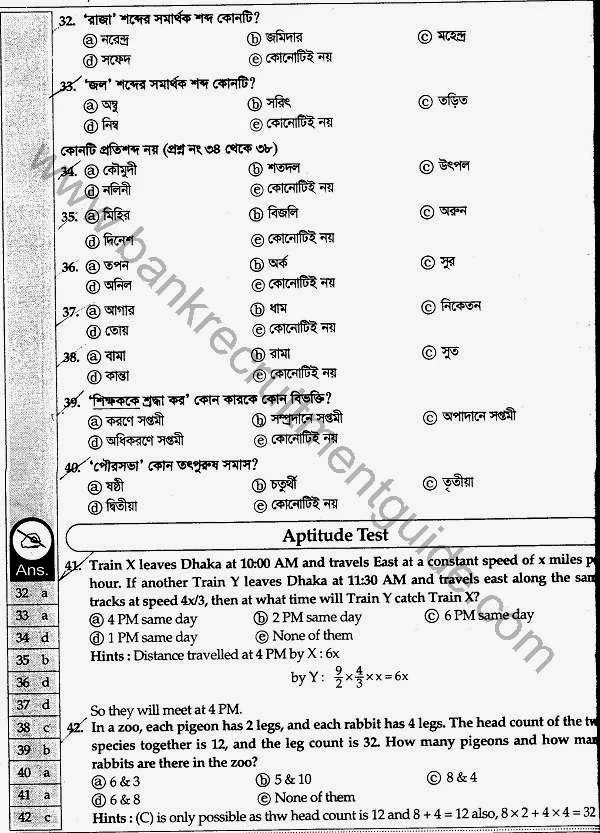 32. ‘রাজা’ শব্দের সমার্থক শব্দ কোনটি?
ⓐ নরেন্দ্র ⓑ জমিদার ⓒ মহেন্দ্র
ⓓ সফেদ ⓔ কোনোটিই নয়
33. ‘জল’ শব্দের সমার্থক শব্দ কোনটি?
ⓐ অম্বু ⓑ সরিৎ ⓒ তড়িত
ⓓ নিম্ব ⓔ কোনোটিই নয়
কোনটি প্রতিশব্দ নয় (প্রশ্ন নং ৩৪ থেকে ৩৮)
34. ⓐ কৌমুদী ⓑ শতদল ⓒ উৎপল
ⓓ নলিনী ⓔ কোনোটিই নয়
35. ⓐ মিহির ⓑ বিজলি ⓒ অরুন
ⓓ দিনেশ ⓔ কোনোটিই নয়
36. ⓐ তপন ⓑ অর্ক ⓒ সুর
ⓓ অনিল ⓔ কোনোটিই নয়
37. ⓐ আগার ⓑ ধাম ⓒ নিকেতন
ⓓ তোয় ⓔ কোনোটিই নয়
38. ⓐ বামা ⓑ রামা ⓒ সুত
ⓓ কান্তা ⓔ কোনোটিই নয়
39. ‘শিক্ষককে শ্রদ্ধা কর’ কোন কারকে কোন বিভক্তি?
ⓐ করণে সপ্তমী ⓑ সম্প্রদানে সপ্তমী ⓒ অপাদানে সপ্তমী
ⓓ অধিকরণে সপ্তমী ⓔ কোনোটিই নয়
40. ‘পৌরসভা’ কোন তৎপুরুষ সমাস?
ⓐ ষষ্ঠী ⓑ চতুর্থী ⓒ তৃতীয়া
ⓓ দ্বিতীয়া ⓔ কোনোটিই নয়
Aptitude Test
41. Train X leaves Dhaka at 10:00 AM and travels East at a constant speed of x miles
hour. If another Train Y leaves Dhaka at 11:30 AM and travels east along the
tracks at speed 4x/3, then at what time will Train Y catch Train X?
ⓐ 4 PM same day ⓑ 2 PM same day ⓒ 6 PM same day
ⓓ 1 PM same day ⓔ None of them
Hints : Distance travelled at 4 PM by X : 6x
by Y : 9/2 × 4/3 × x = 6x
So they will meet at 4 PM.
42. In a zoo, each pigeon has 2 legs, and each rabbit has 4 legs. The head count of the
species together is 12, and the leg count is 32. How many pigeons and how
rabbits are there in the zoo?
ⓐ 6 & 3 ⓑ 5 & 10 ⓒ 8 & 4
ⓓ 6 & 8 ⓔ None of them
Hints : (C) is only possible as thw head count is 12 and 8 + 4 = 12 also, 8 × 2 + 4 × 4 = 32
Ans.
32 a
33 a
34 d
35 b
36 d
37 d
38 c
39 b
40 a
41 a
42 c
www.bankrecruitmentguide.com